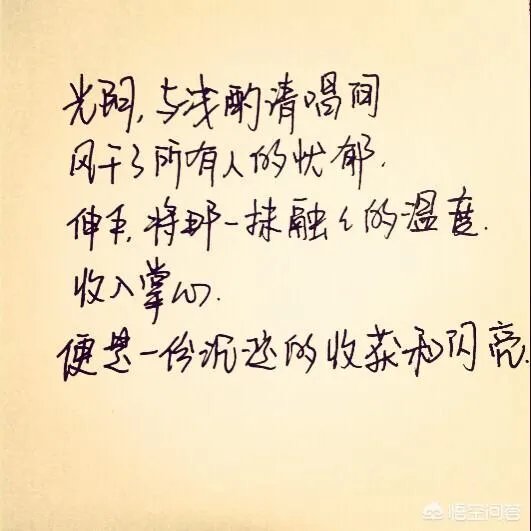 光阴,与浅酌清唱间
风干了所有人的忧郁.
伸手,将那一抹融融的温度.
收入掌心.
便是一份沉迷的收获和闪亮.
悟空问答